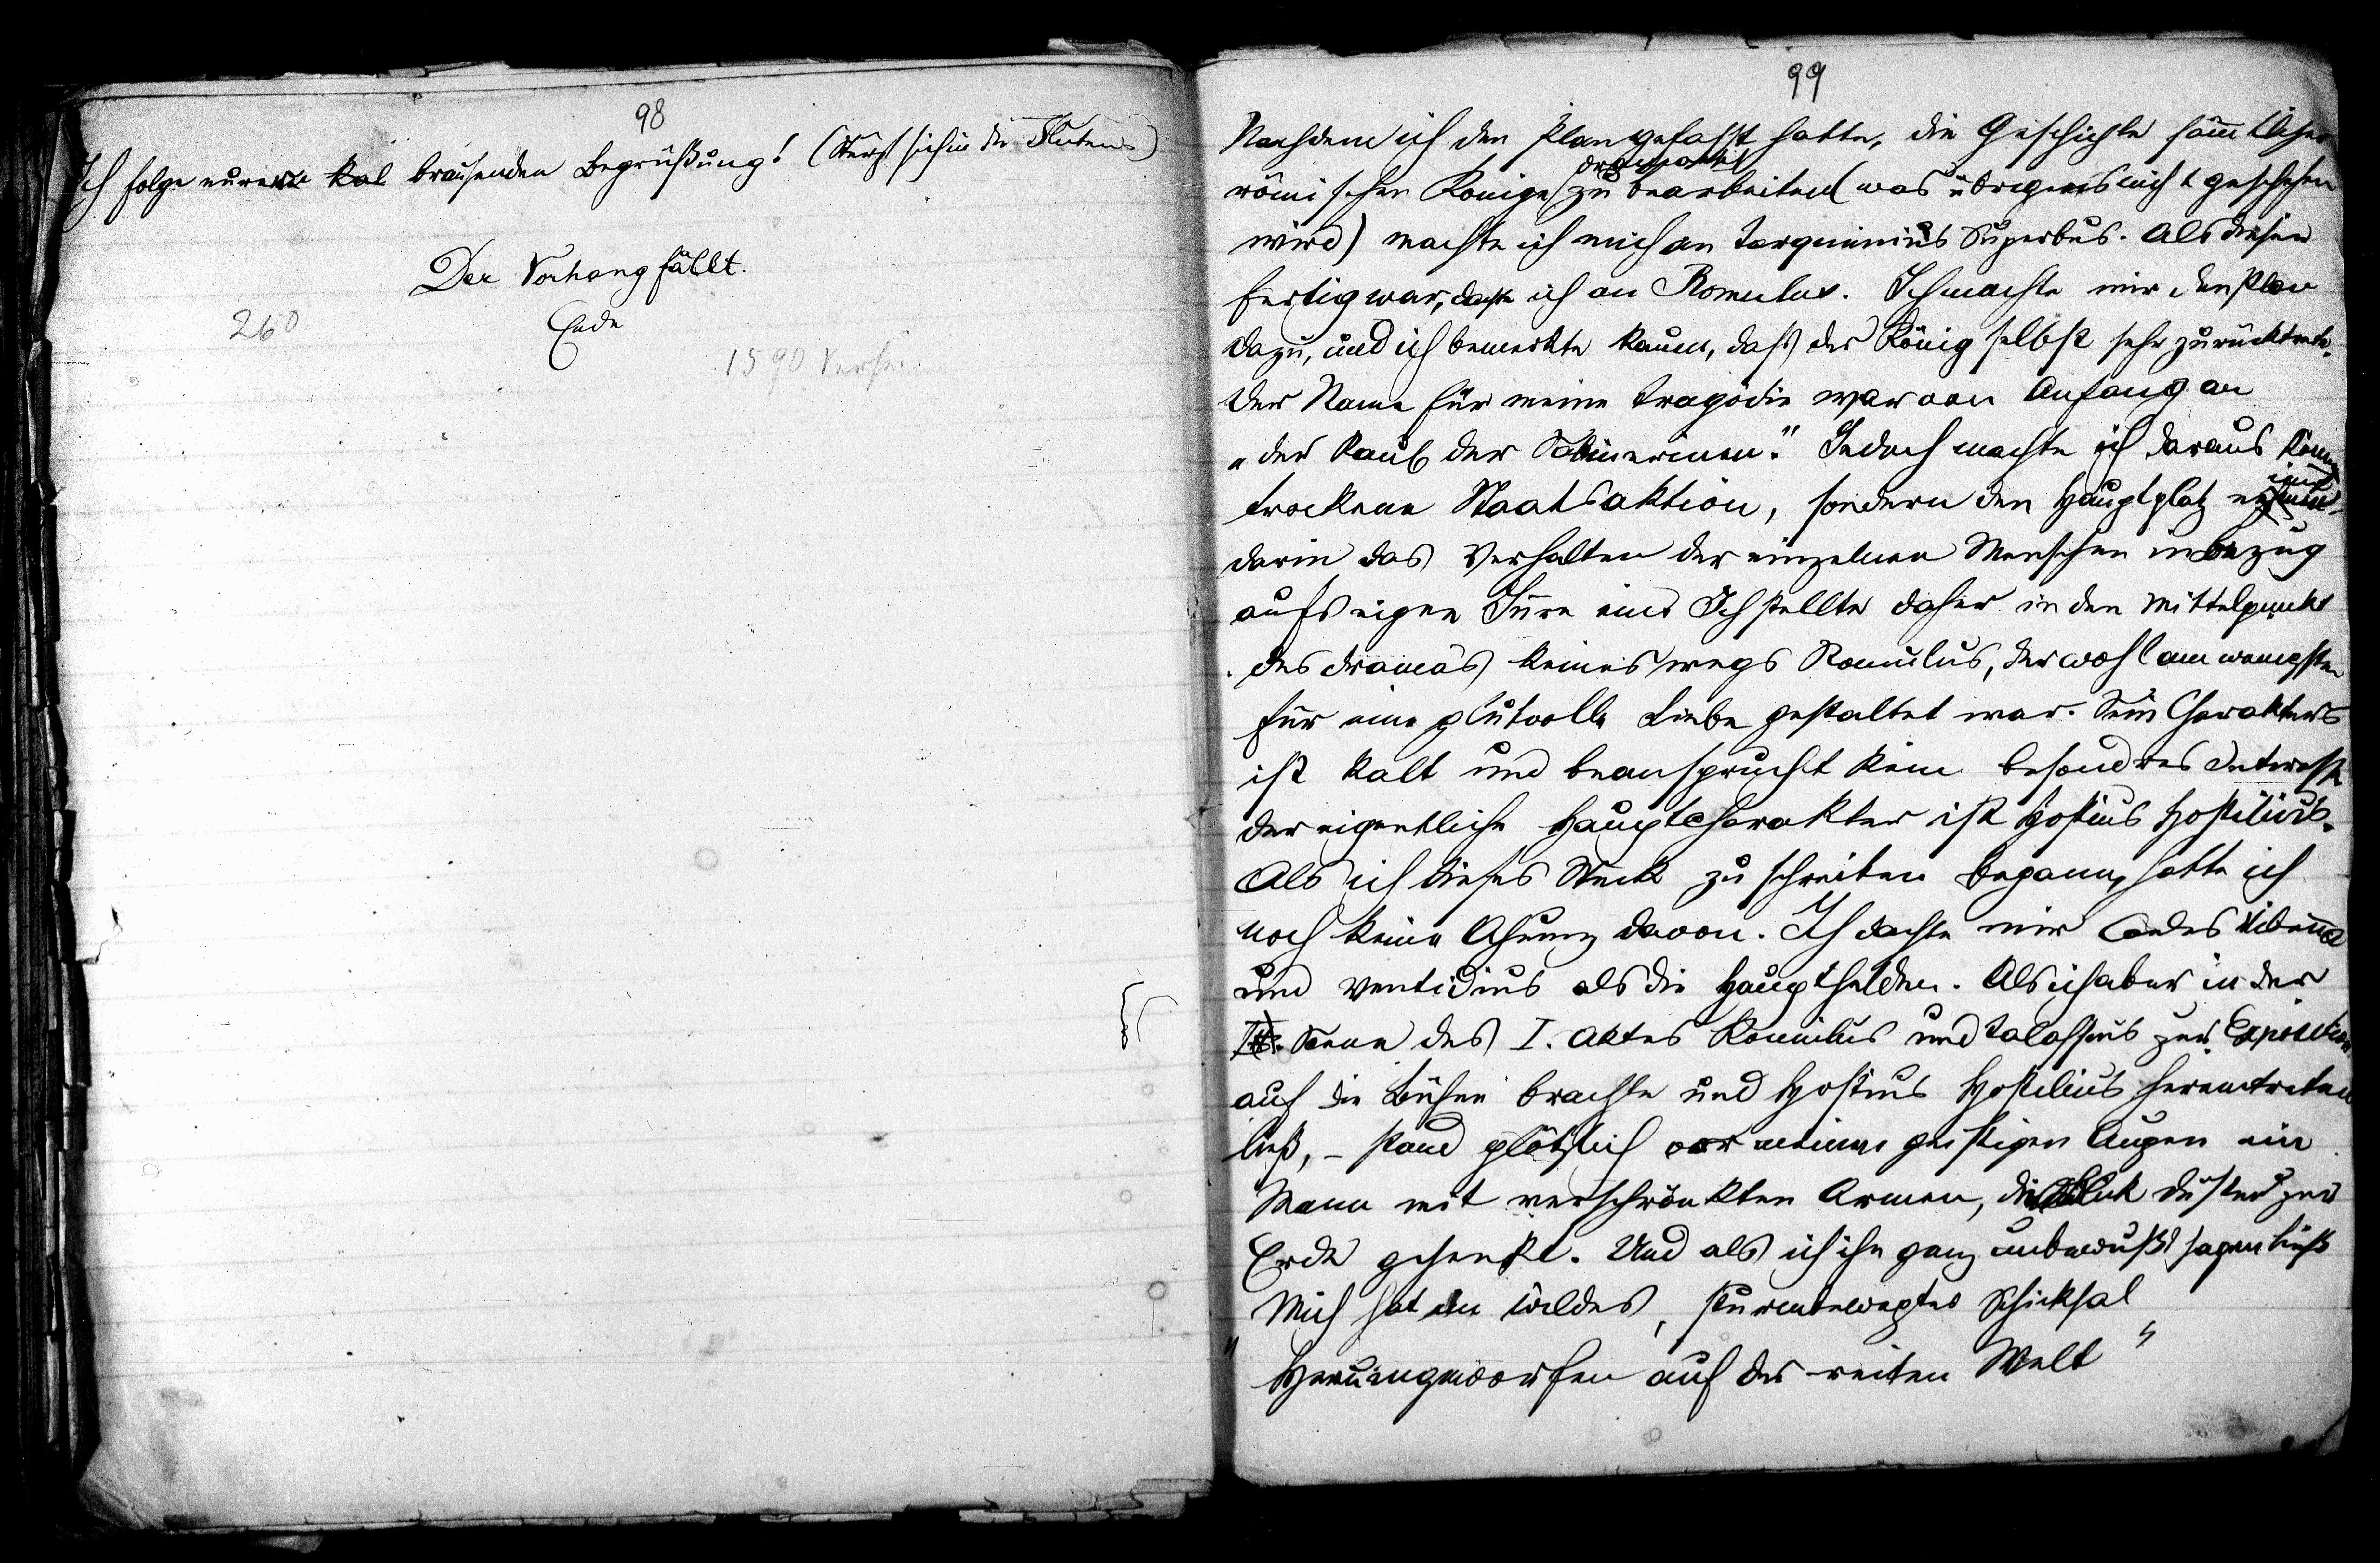 98
Ich folge eurer kal brausenden Begrüßung! (Stürzt sich in die Fluten)
Der Vorhang fällt.
260
Ende
1590 Verse.
99
Nachdem ich den Plan gefasst hatte, die Geschichte sämmtlicher
dramatisch
römischer Könige zu bearbeiten (was übrigens nicht geschehen
wird) machte ich mich an Tarquinius Superbus. Als dieser
fertig war, dachte ich an Romulus. Ich machte mir den Plan
dazu, und ich bemerkte kaum, daß der König selbst sehr zurücktrete.
Der Name für meine Tragödie war von Anfang an
„der Raub der Sabinerinen." Jedoch machte ich daraus keine
trockene Staatsaktion, sondern den Hauptplatz nimmt
darin das Verhalten der einzelnen Menschen in bezug
aufs eigne ein. Ich stellte daher in den Mittelpunkt
des Dramas keineswegs Romulus, der wohl am wenigsten
für eine glutvolle Liebe gestaltet war. Sein Charakter
ist kalt und beansprucht kein besondres Interesse
der eigentliche Hauptcharakter ist Hostius Hostilius.
Als ich dieses Stück zu schreiben begann, hatte ich
noch keine Ahnung davon. Ich dachte mir Caeles Vibenna
und Ventidius als die Haupthelden. Als ich aber in der
Scene des I. Aktes Romulus und Talassius zur Exposition
auf die Bühne brachte und Hostius Hostilius hereintreten
ließ, – stand plötzlich vor meinen geistigen Augen ein
Mann mit verschränkten Armen, Blick düster zur
Erde gesenkt. Und als ich ihn ganz unbewußt sagen ließ
Mich hat ein wildes, sturmbewegtes Schicksal
„Herumgeworfen auf der weiten Welt"